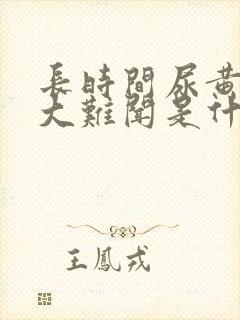 長時間尿黃
大難聞是什
王鳳戎